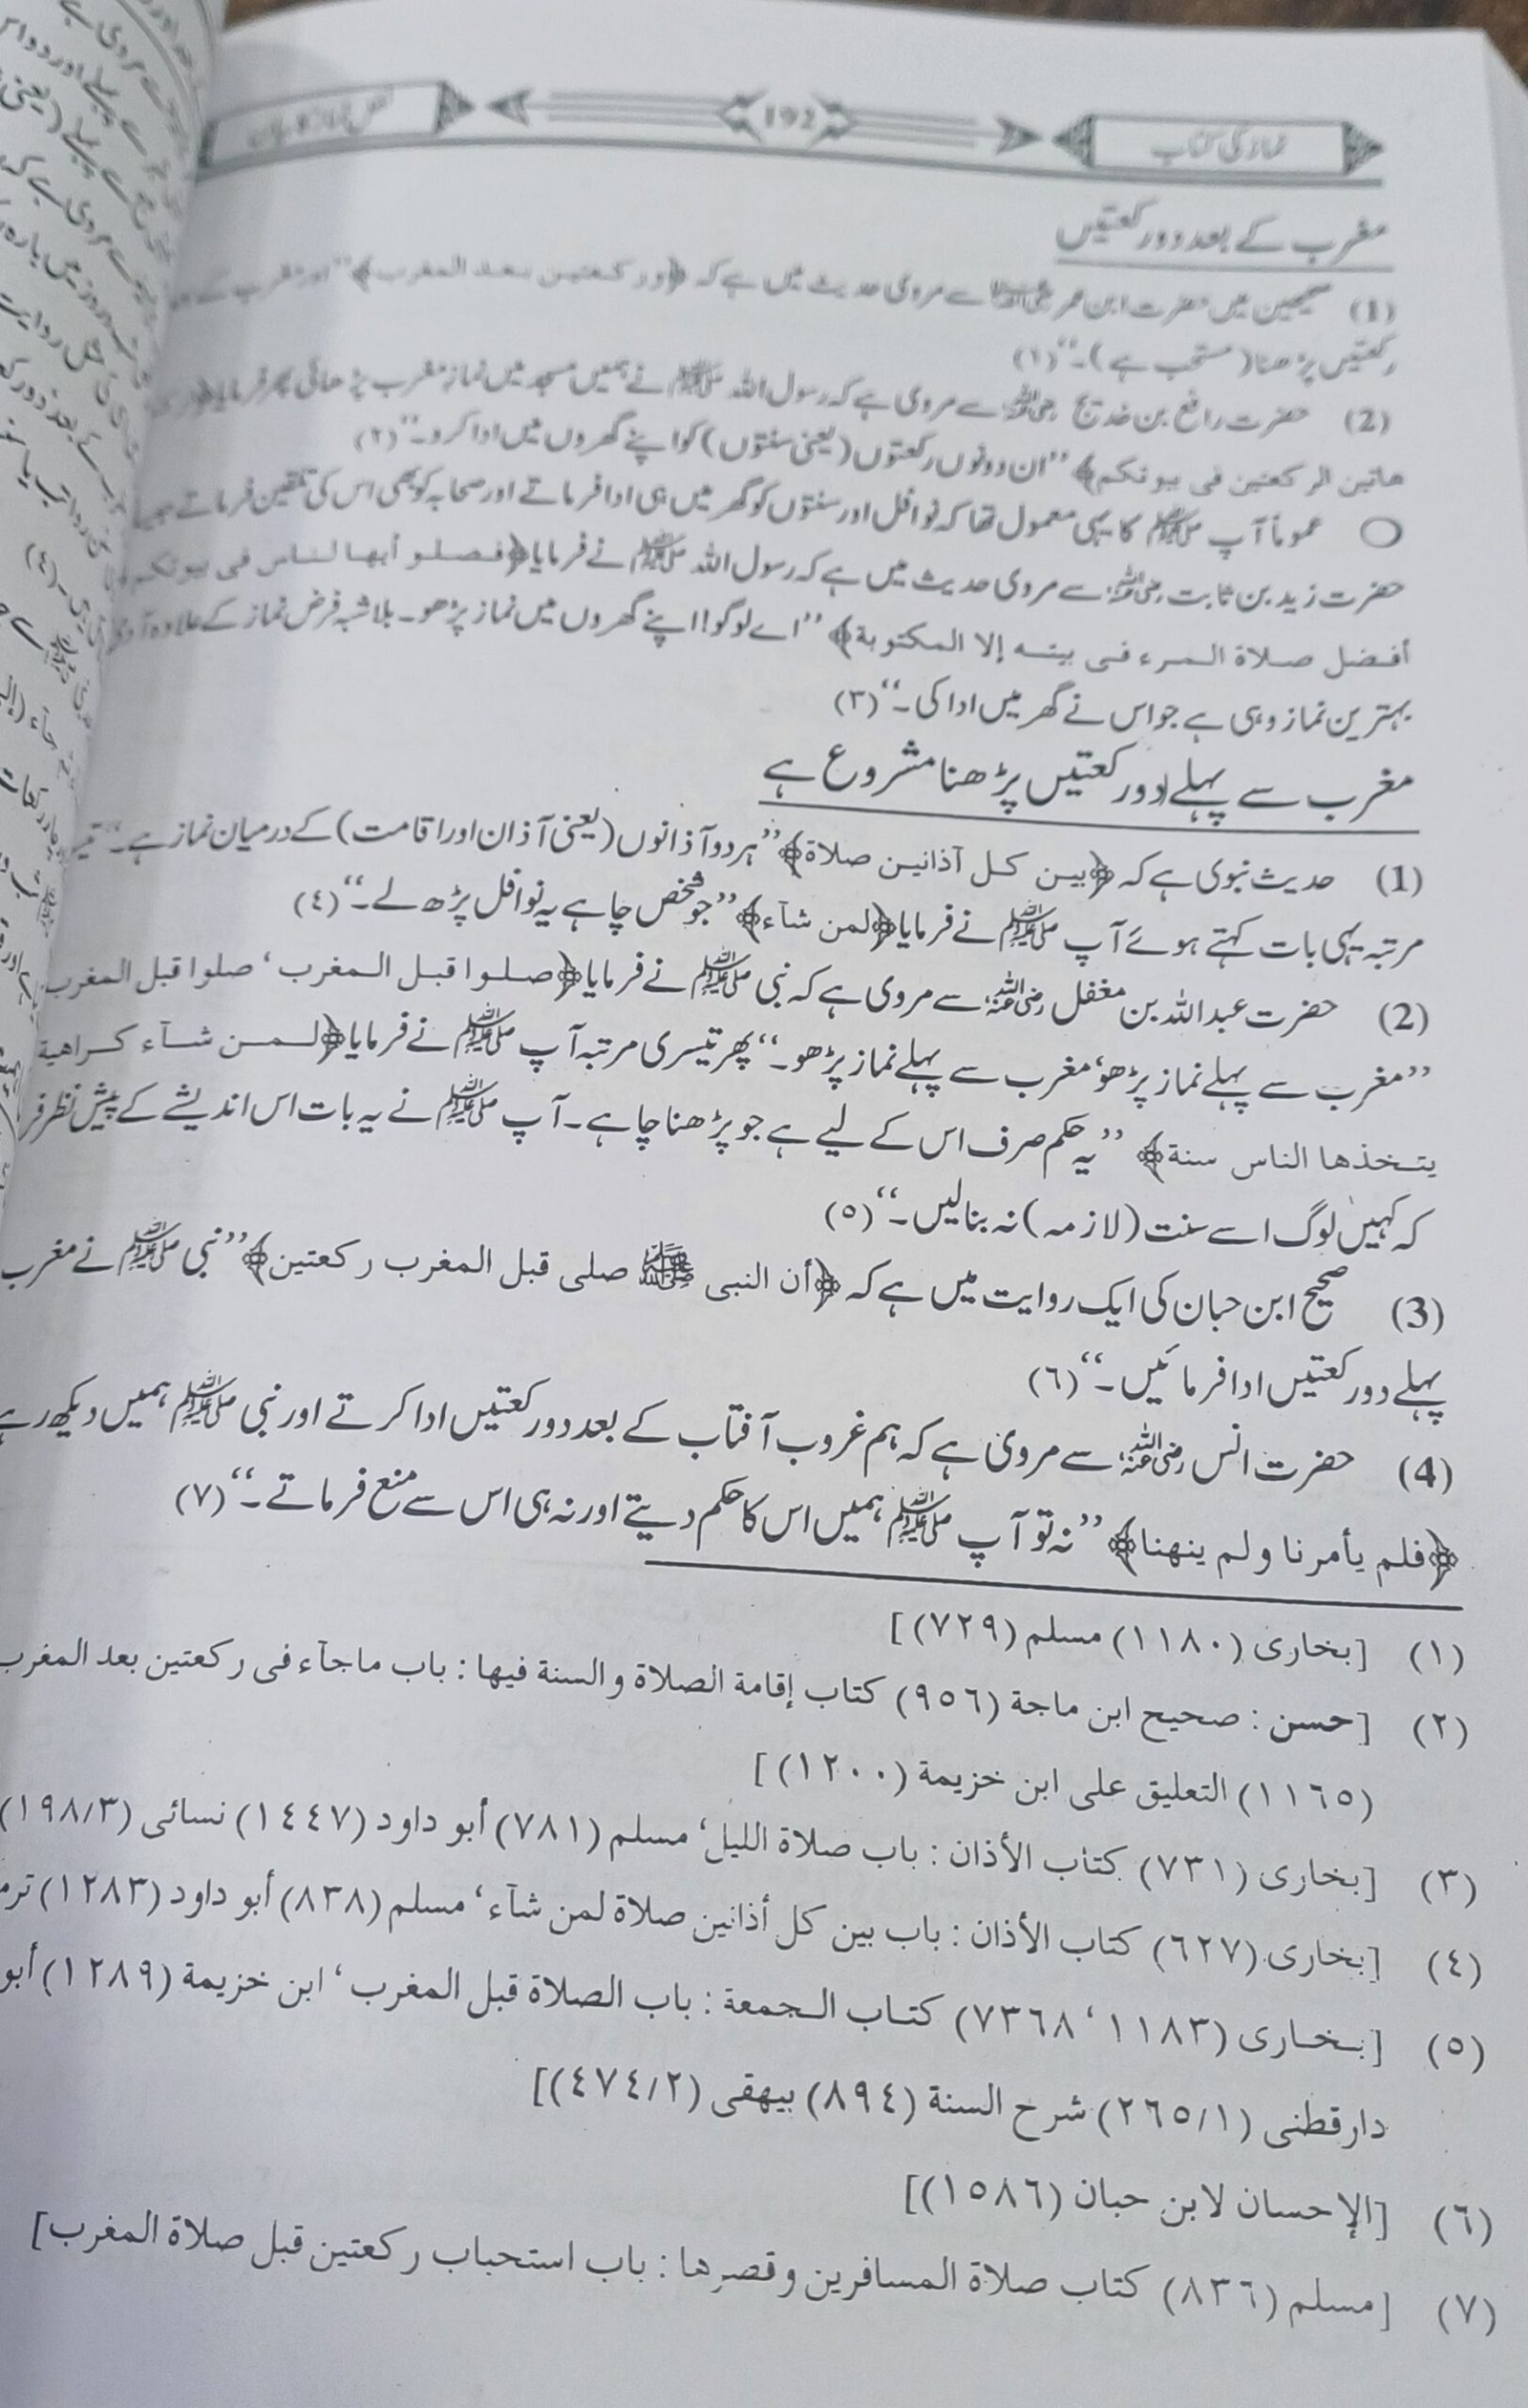 نماز کی کتاب
192
نفل نماز کا بیان
مغرب کے بعد دو رکعتیں
(1) صحیحین میں حضرت ابن عمر رضی اللہ عنہما سے مروی حدیث میں ہے کہ ﴿ورکعتین بعد المغرب﴾ ’’اور مغرب کے بعد
رکعتیں پڑھنا (مستحب ہے)۔‘‘ (١)
(2) حضرت رافع بن خدیج رضی اللہ عنہ سے مروی ہے کہ رسول اللہ ﷺ نے ہمیں مسجد میں نماز مغرب پڑھائی پھر فرمایا
هاتين الركعتين فى بيوتكم﴾ ’’ان دونوں رکعتوں (یعنی سنتوں) کو اپنے گھروں میں ادا کرو۔‘‘ (٢)
○ عموماً آپ ﷺ کا یہی معمول تھا کہ نوافل اور سنتوں کو گھر میں ہی ادا فرماتے اور صحابہ کو بھی اس کی تلقین فرماتے جیسا
حضرت زید بن ثابت رضی اللہ عنہ سے مروی حدیث میں ہے کہ رسول اللہ ﷺ نے فرمایا ﴿فصلوا أيها الناس فى بيوتكم
أفضل صلاة المرء فى بيته إلا المكتوبة﴾ ’’اے لوگو! اپنے گھروں میں نماز پڑھو۔ بلاشبہ فرض نماز کے علاوہ آدمی
بہترین نماز وہی ہے جو اس نے گھر میں ادا کی۔‘‘ (٣)
مغرب سے پہلے دو رکعتیں پڑھنا مشروع ہے
(1) حدیث نبوی ہے کہ ﴿بين كل آذانين صلاة﴾ ’’ہر دو آذانوں (یعنی آذان اور اقامت) کے درمیان نماز ہے۔‘‘
مرتبہ یہی بات کہتے ہوئے آپ ﷺ نے فرمایا ﴿لمن شآء﴾ ’’جو شخص چاہے یہ نوافل پڑھ لے۔‘‘ (٤)
(2) حضرت عبداللہ بن مغفل رضی اللہ عنہ سے مروی ہے کہ نبی ﷺ نے فرمایا ﴿صلوا قبل المغرب‘ صلوا قبل المغرب
’’مغرب سے پہلے نماز پڑھو‘ مغرب سے پہلے نماز پڑھو۔‘‘ پھر تیسری مرتبہ آپ ﷺ نے فرمایا ﴿لمن شآء كراهية
يتخذها الناس سنة﴾ ’’یہ حکم صرف اس کے لیے ہے جو پڑھنا چاہے۔ آپ ﷺ نے یہ بات اس اندیشے کے پیش نظر فر
کہ کہیں لوگ اسے سنت (لازمہ) نہ بنا لیں۔‘‘ (٥)
(3) صحیح ابن حبان کی ایک روایت میں ہے کہ ﴿أن النبى ﷺ صلى قبل المغرب ركعتين﴾ ’’نبی ﷺ نے مغرب
پہلے دو رکعتیں ادا فرمائیں۔‘‘ (٦)
(4) حضرت انس رضی اللہ عنہ سے مروی ہے کہ ہم غروب آفتاب کے بعد دو رکعتیں ادا کرتے اور نبی ﷺ ہمیں دیکھ رہے
﴿فلم يأمرنا ولم ينهنا﴾ ’’نہ تو آپ ﷺ ہمیں اس کا حکم دیتے اور نہ ہی اس سے منع فرماتے۔‘‘ (٧)
(١) [بخاری (١١٨٠) مسلم (٧٢٩)]
(٢) [حسن : صحيح ابن ماجة (٩٥٦) كتاب إقامة الصلاة والسنة فيها : باب ماجآء فى ركعتين بعد المغرب
(١١٦٥) التعليق على ابن خزيمة (١٢٠٠)]
(٣) [بخاری (٧٣١) كتاب الأذان : باب صلاة الليل‘ مسلم (٧٨١) أبو داود (١٤٤٧) نسائى (١٩٨/٣)
(٤) [بخاری (٦٢٧) كتاب الأذان : باب بين كل أذانين صلاة لمن شآء‘ مسلم (٨٣٨) أبو داود (١٢٨٣) ترم
(٥) [بخاری (١١٨٣‘ ٧٣٦٨) كتاب الجمعة : باب الصلاة قبل المغرب‘ ابن خزيمة (١٢٨٩) أبو
دارقطنى (٢٦٥/١) شرح السنة (٨٩٤) بيهقى (٤٧٤/٢)]
(٦) [الإحسان لابن حبان (١٥٨٦)]
(٧) [مسلم (٨٣٦) كتاب صلاة المسافرين وقصرها : باب استحباب ركعتين قبل صلاة المغرب]